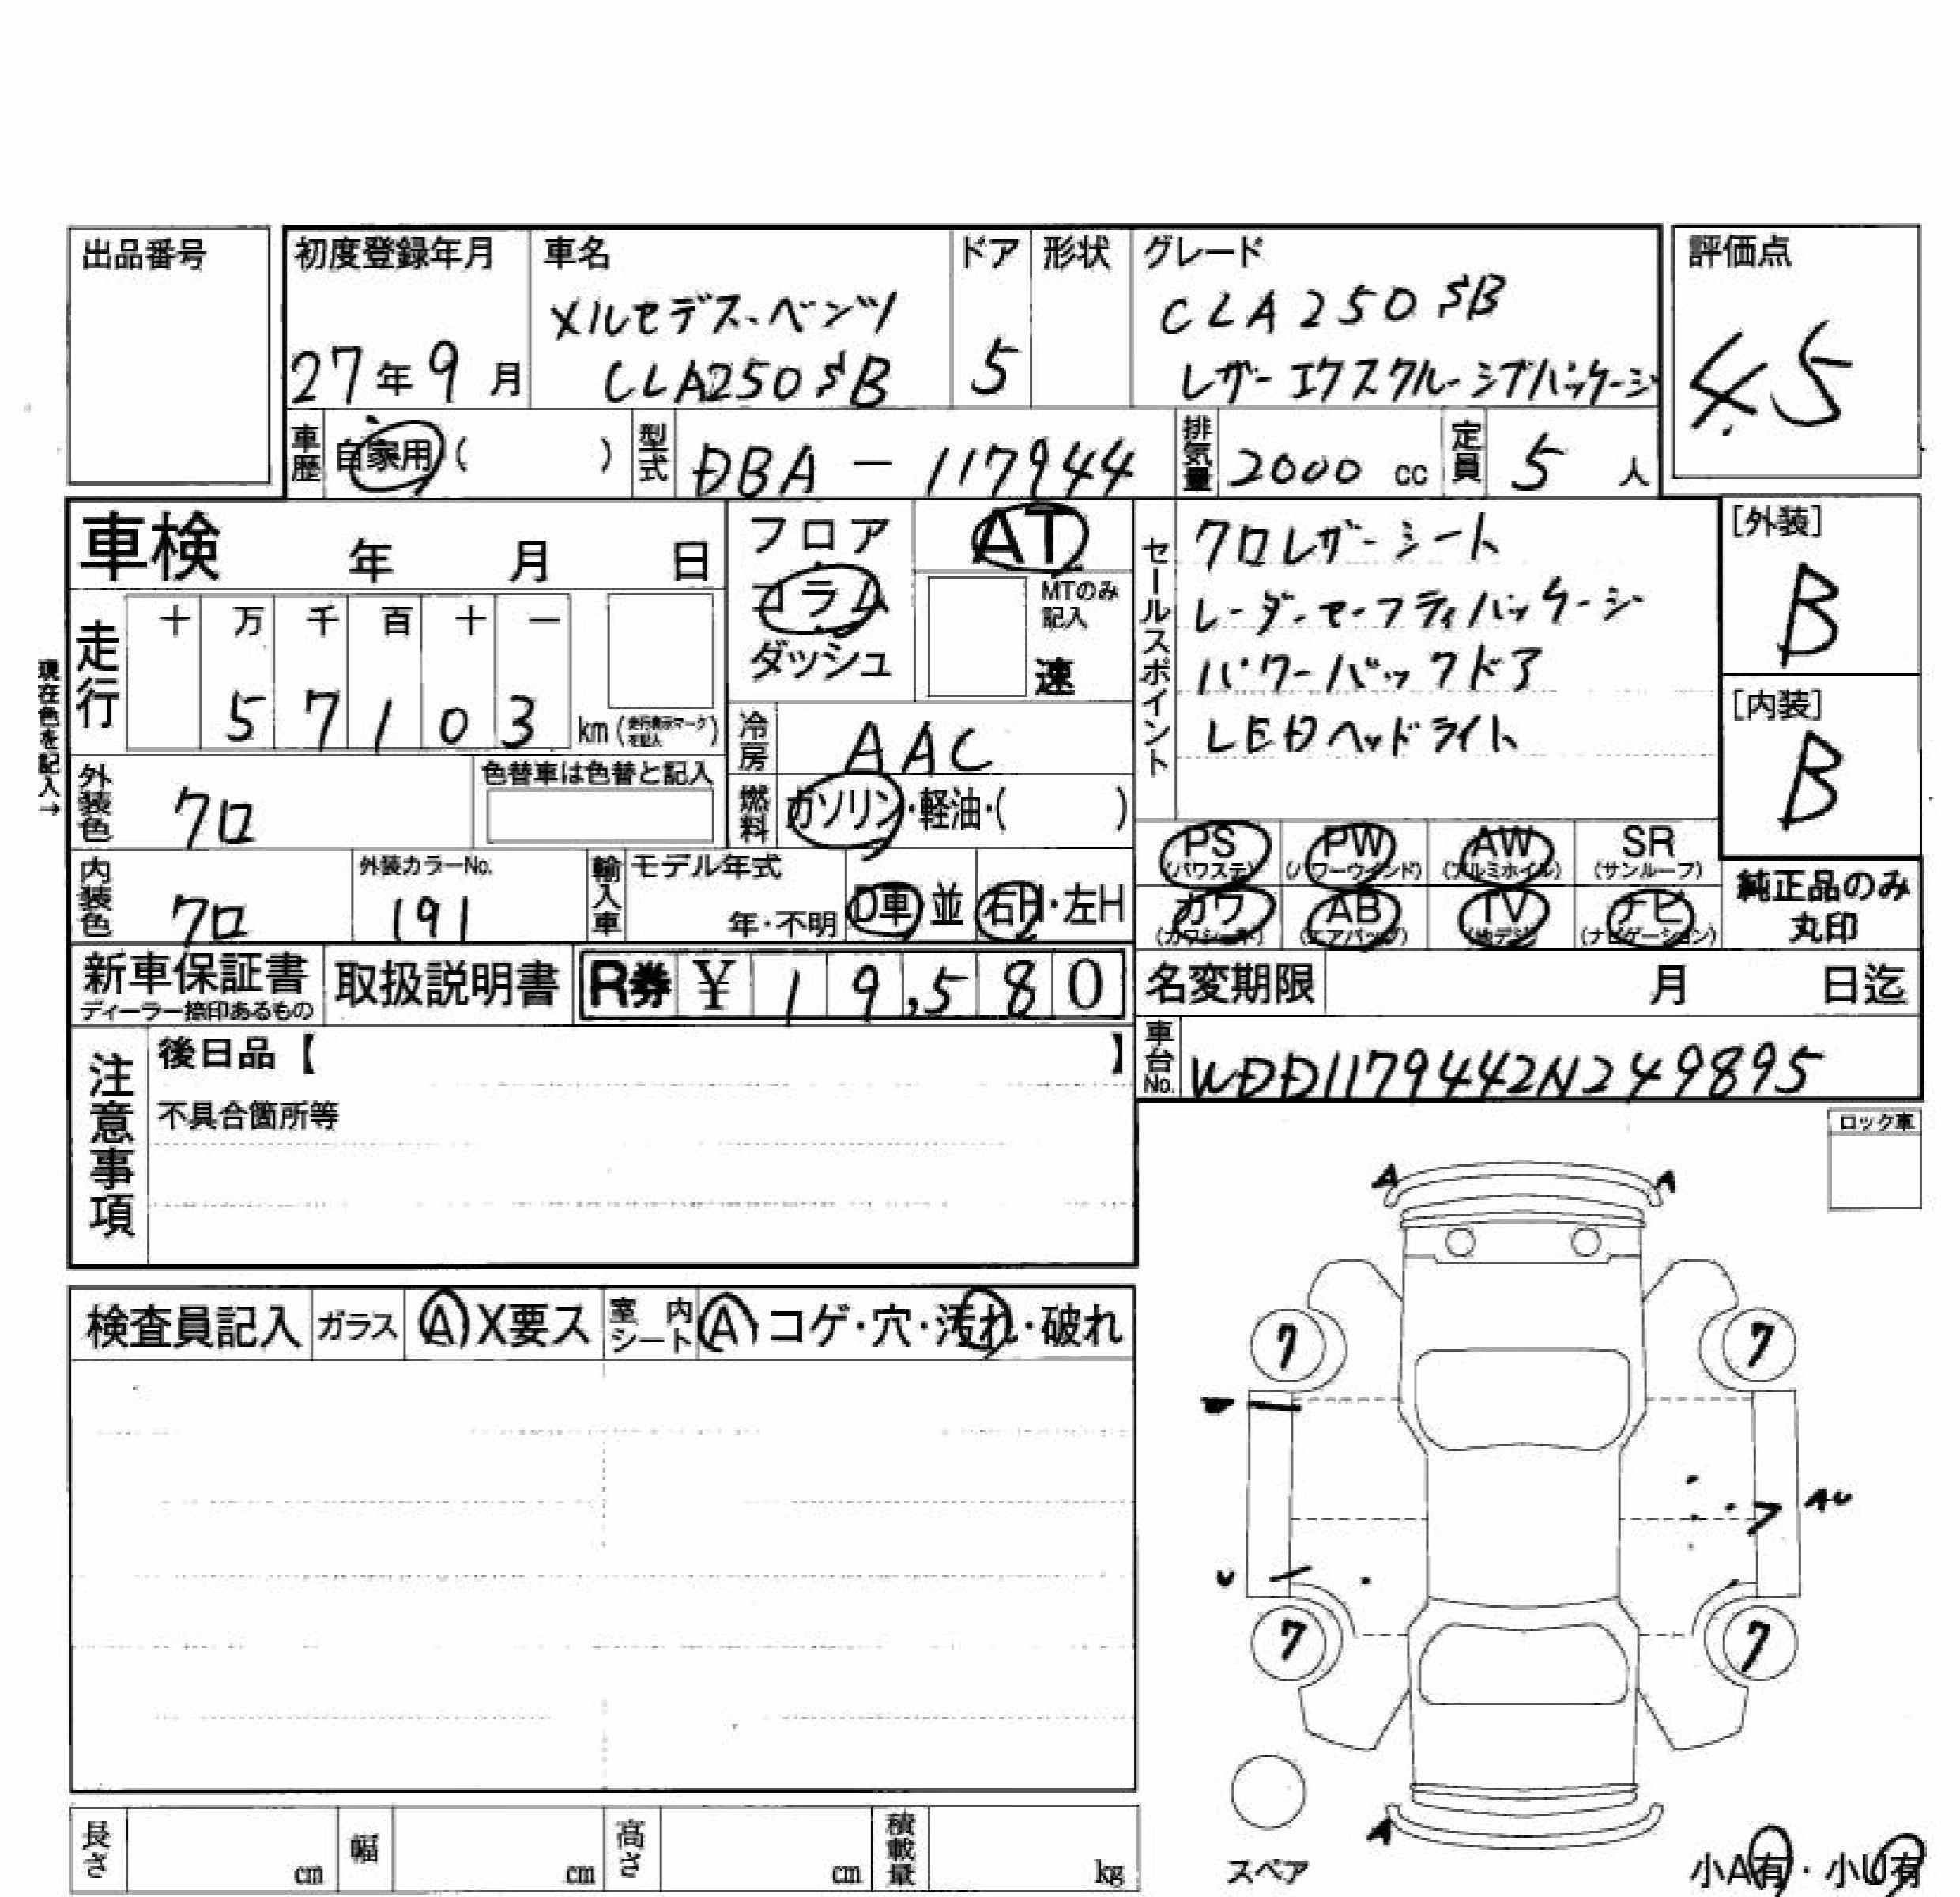 出品番号
初度登録年月
27年9月
車名
メルセデス・ベンツ
CLA250SB
ドア
5
形状
グレード
CLA250SB
レザーエクスクルーシブパッケージ
評価点
4.5
車歴 自家用( )
型式 DBA-117944
排気量 2000 cc
定員 5 人
車検 年 月 日
フロア
コラム
ダッシュ
AT
MTのみ
記入
速
セールスポイント
クロレザーシート
レーダーセーフティパッケージ
パワーバックドア
LEDヘッドライト
[外装]
B
[内装]
B
現在色を記入→
走行
十 万 千 百 十 一
5 7 1 0 3 km (走行表示マークを記入)
冷房 AAC
外装色 クロ
色替車は色替と記入
燃料 ガソリン・軽油・( )
内装色 クロ
外装カラーNo.
191
輸入車
モデル年式
年・不明
D車 並
右H・左H
PS (パワステ)
PW (パワーウインド)
AW (アルミホイル)
SR (サンルーフ)
カワ (カワシート)
AB (エアバッグ)
TV (地デジ)
ナビ (ナビゲーション)
純正品のみ
丸印
新車保証書
ディーラー捺印あるもの
取扱説明書
R券 ¥ 19,580
名変期限 月 日迄
車台No. WDD1179442N249895
注意事項
後日品【 】
不具合箇所等
ロック車
検査員記入
ガラス A X要ス
室内シート A コゲ・穴・汚れ・破れ
A A
7 7
AU
U
7 7
A
スペア
小A有・小U有
長さ cm
幅 cm
高さ cm
積載量 kg